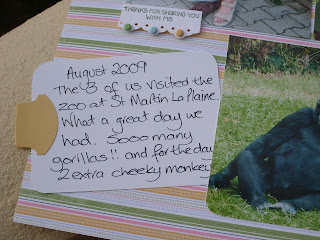 THANKS FOR SHARING YOU
WITH ME
August 2009
The 3 of us visited the
zoo at St Martin La Plaine.
What a great day we
had. Sooo many
gorillas!! and for the day
2 extra cheeky monkey